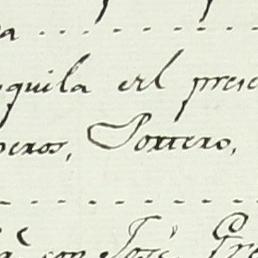 a
quila erl prese
peros, Portero,
con José Gre